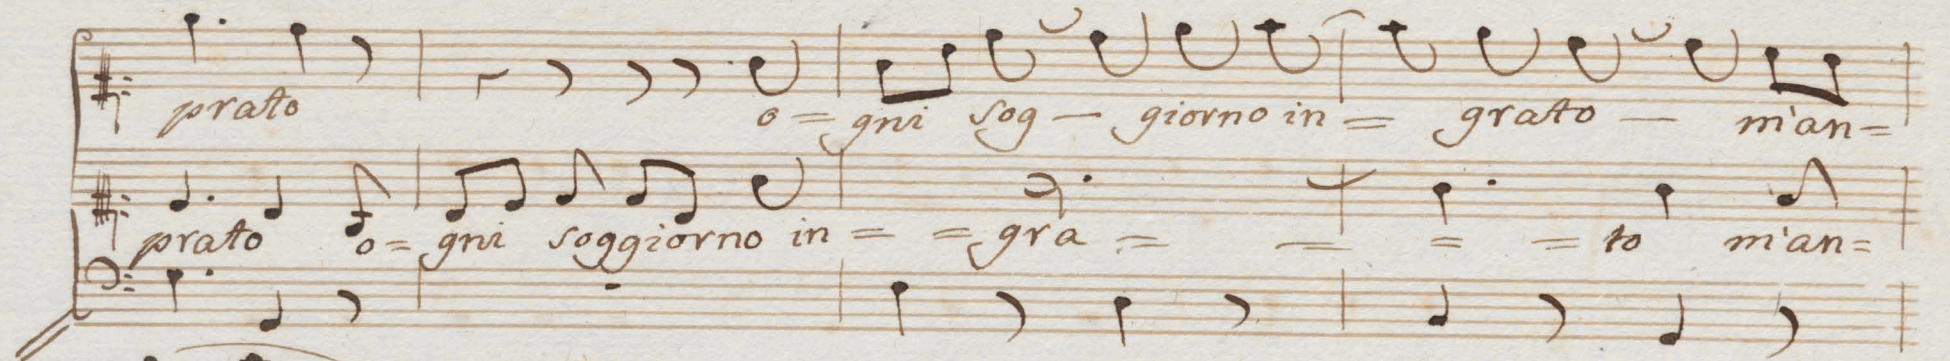 prato o= gni sog — giorno in = grato — m'an=
prato o= gni soggiorno in = = gra = = = = to m'an=